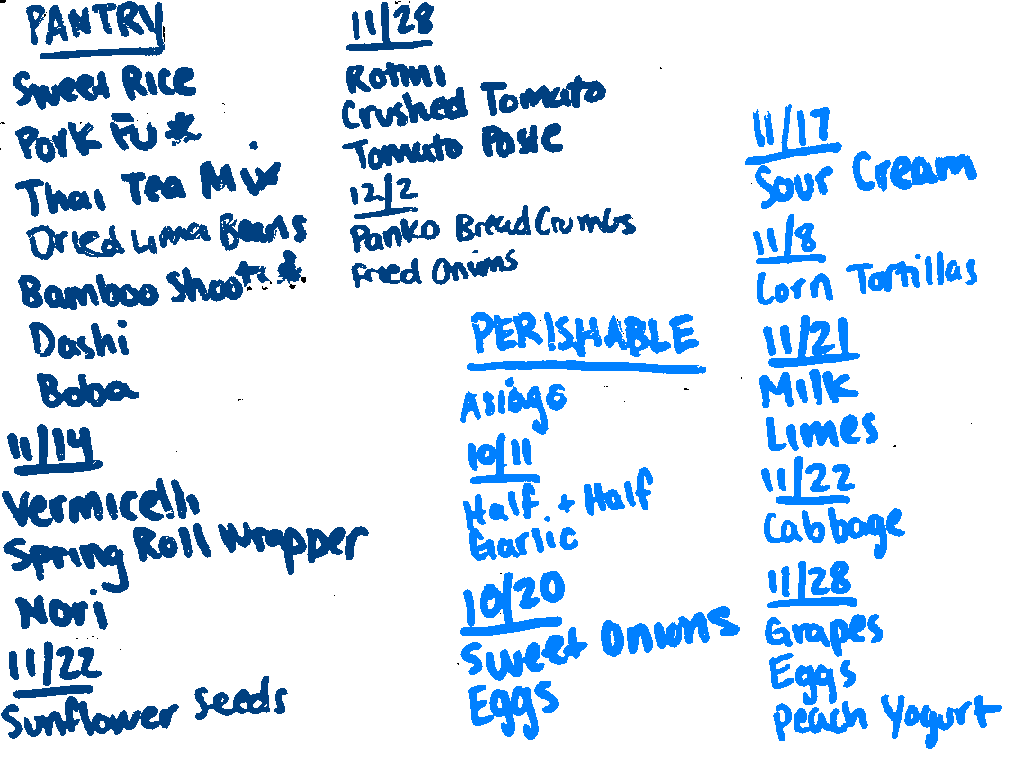 PANTRY
Sweet Rice
Pork Fu *
Thai Tea Mix
Dried Lima Beans
Bamboo Shoots *
Dashi
Boba
11/14
Vermicelli
Spring Roll Wrapper
Nori
11/22
Sunflower Seeds
11/28
Rotini
Crushed Tomato
Tomato Paste
12/2
Panko Bread Crumbs
Fried Onions
PERISHABLE
Asiago
10/11
Half + Half
Garlic
10/20
Sweet Onions
Eggs
11/17
Sour Cream
11/8
Corn Tortillas
11/21
Milk
Limes
11/22
Cabbage
11/28
Grapes
Eggs
Peach Yogurt